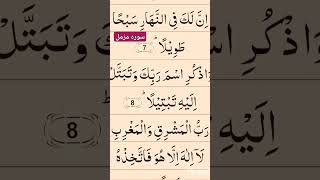 اِنَّ لَكَ فِى النَّهَارِ سَبْحًا
طَوِيْلًا 7
سوره مزمل
وَاذْكُرِ اسْمَ رَبِّكَ وَتَبَتَّلْ
اِلَيْهِ تَبْتِيْلًا 8
رَبُّ الْمَشْرِقِ وَالْمَغْرِبِ
لَاۤ اِلٰهَ اِلَّا هُوَ فَاتَّخِذْهُ
وَاذْكُرِ
اِلَيْهِ
8